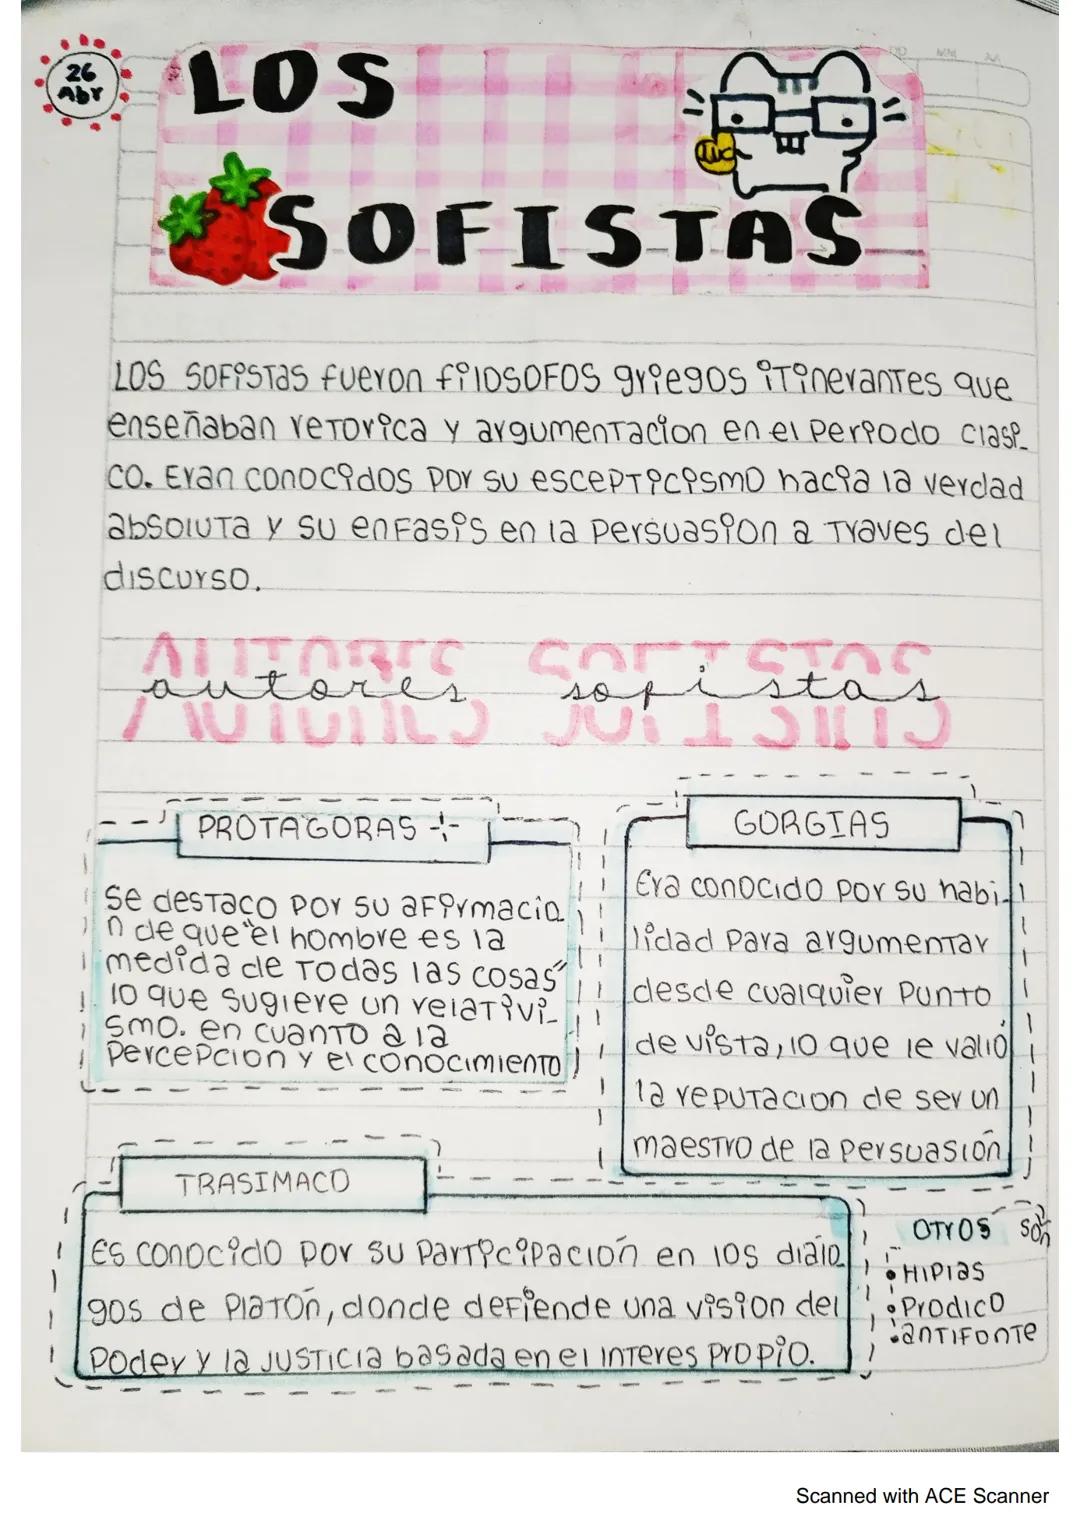 26
Abr
LOS
SOFISTAS
Los sofistas fueron filosofos griegos itinerantes que
enseñaban retorica y argumentacion en el periodo clasi-
co. Eran conocidos por su escepticismo hacia la verdad
absoluta y su enfasis en la persuasion a traves del
discurso.
AUTORES SOFISTAS
autores sofistas
PROTAGORAS
se destaco por su afirmacio
n de que "el hombre es la
medida de todas las cosas"
lo que sugiere un relativi-
smo. en cuanto a la
percepcion y el conocimiento
GORGIAS
Era conocido por su habi-
lidad para argumentar
desde cualquier punto
de vista, lo que le valió
la reputacion de ser un
maestro de la persuasión
TRASIMACO
Es conocido por su participación en los dialo
gos de Platón, donde defiende una vision del
poder y la justicia basada en el interes propio.
otros son
• Hipias
• Prodico
• antifonte
Scanned with ACE Scanner